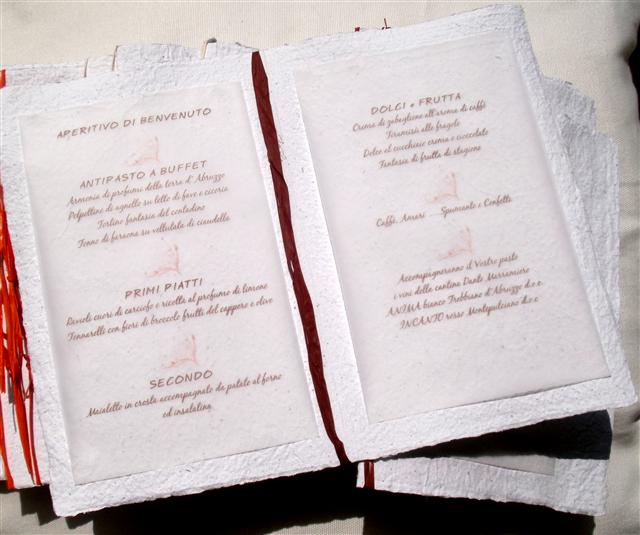 APERITIVO DI BENVENUTO
ANTIPASTO A BUFFET
Armonia di profumi della terra d'Abruzzo
Polpettine di agnello su letto di fave e cicoria
Tortino fantasia del contadino
Tonno di faraona su vellutata di ciaudella
PRIMI PIATTI
Ravioli cuori di carciofo e ricotta al profumo di limone
Tonnarelli con fiori di broccolo frutti del cappero e olive
SECONDO
Maialetto in crosta accompagnato da patate al forno
ed insalatina
DOLCI e FRUTTA
Crema di zabaglione all'aroma di caffè
Tiramisù alle fragole
Dolce al cucchiaio crema e cioccolato
Fantasia di frutta di stagione
Caffè, Amari .... Spumante e Confetti
Accompagneranno il Vostro pasto
i vini della cantina Dante Marramiero
ANIMA bianco Trebbiano d'Abruzzo d.o.c.
INCANTO rosso Montepulciano d.o.c